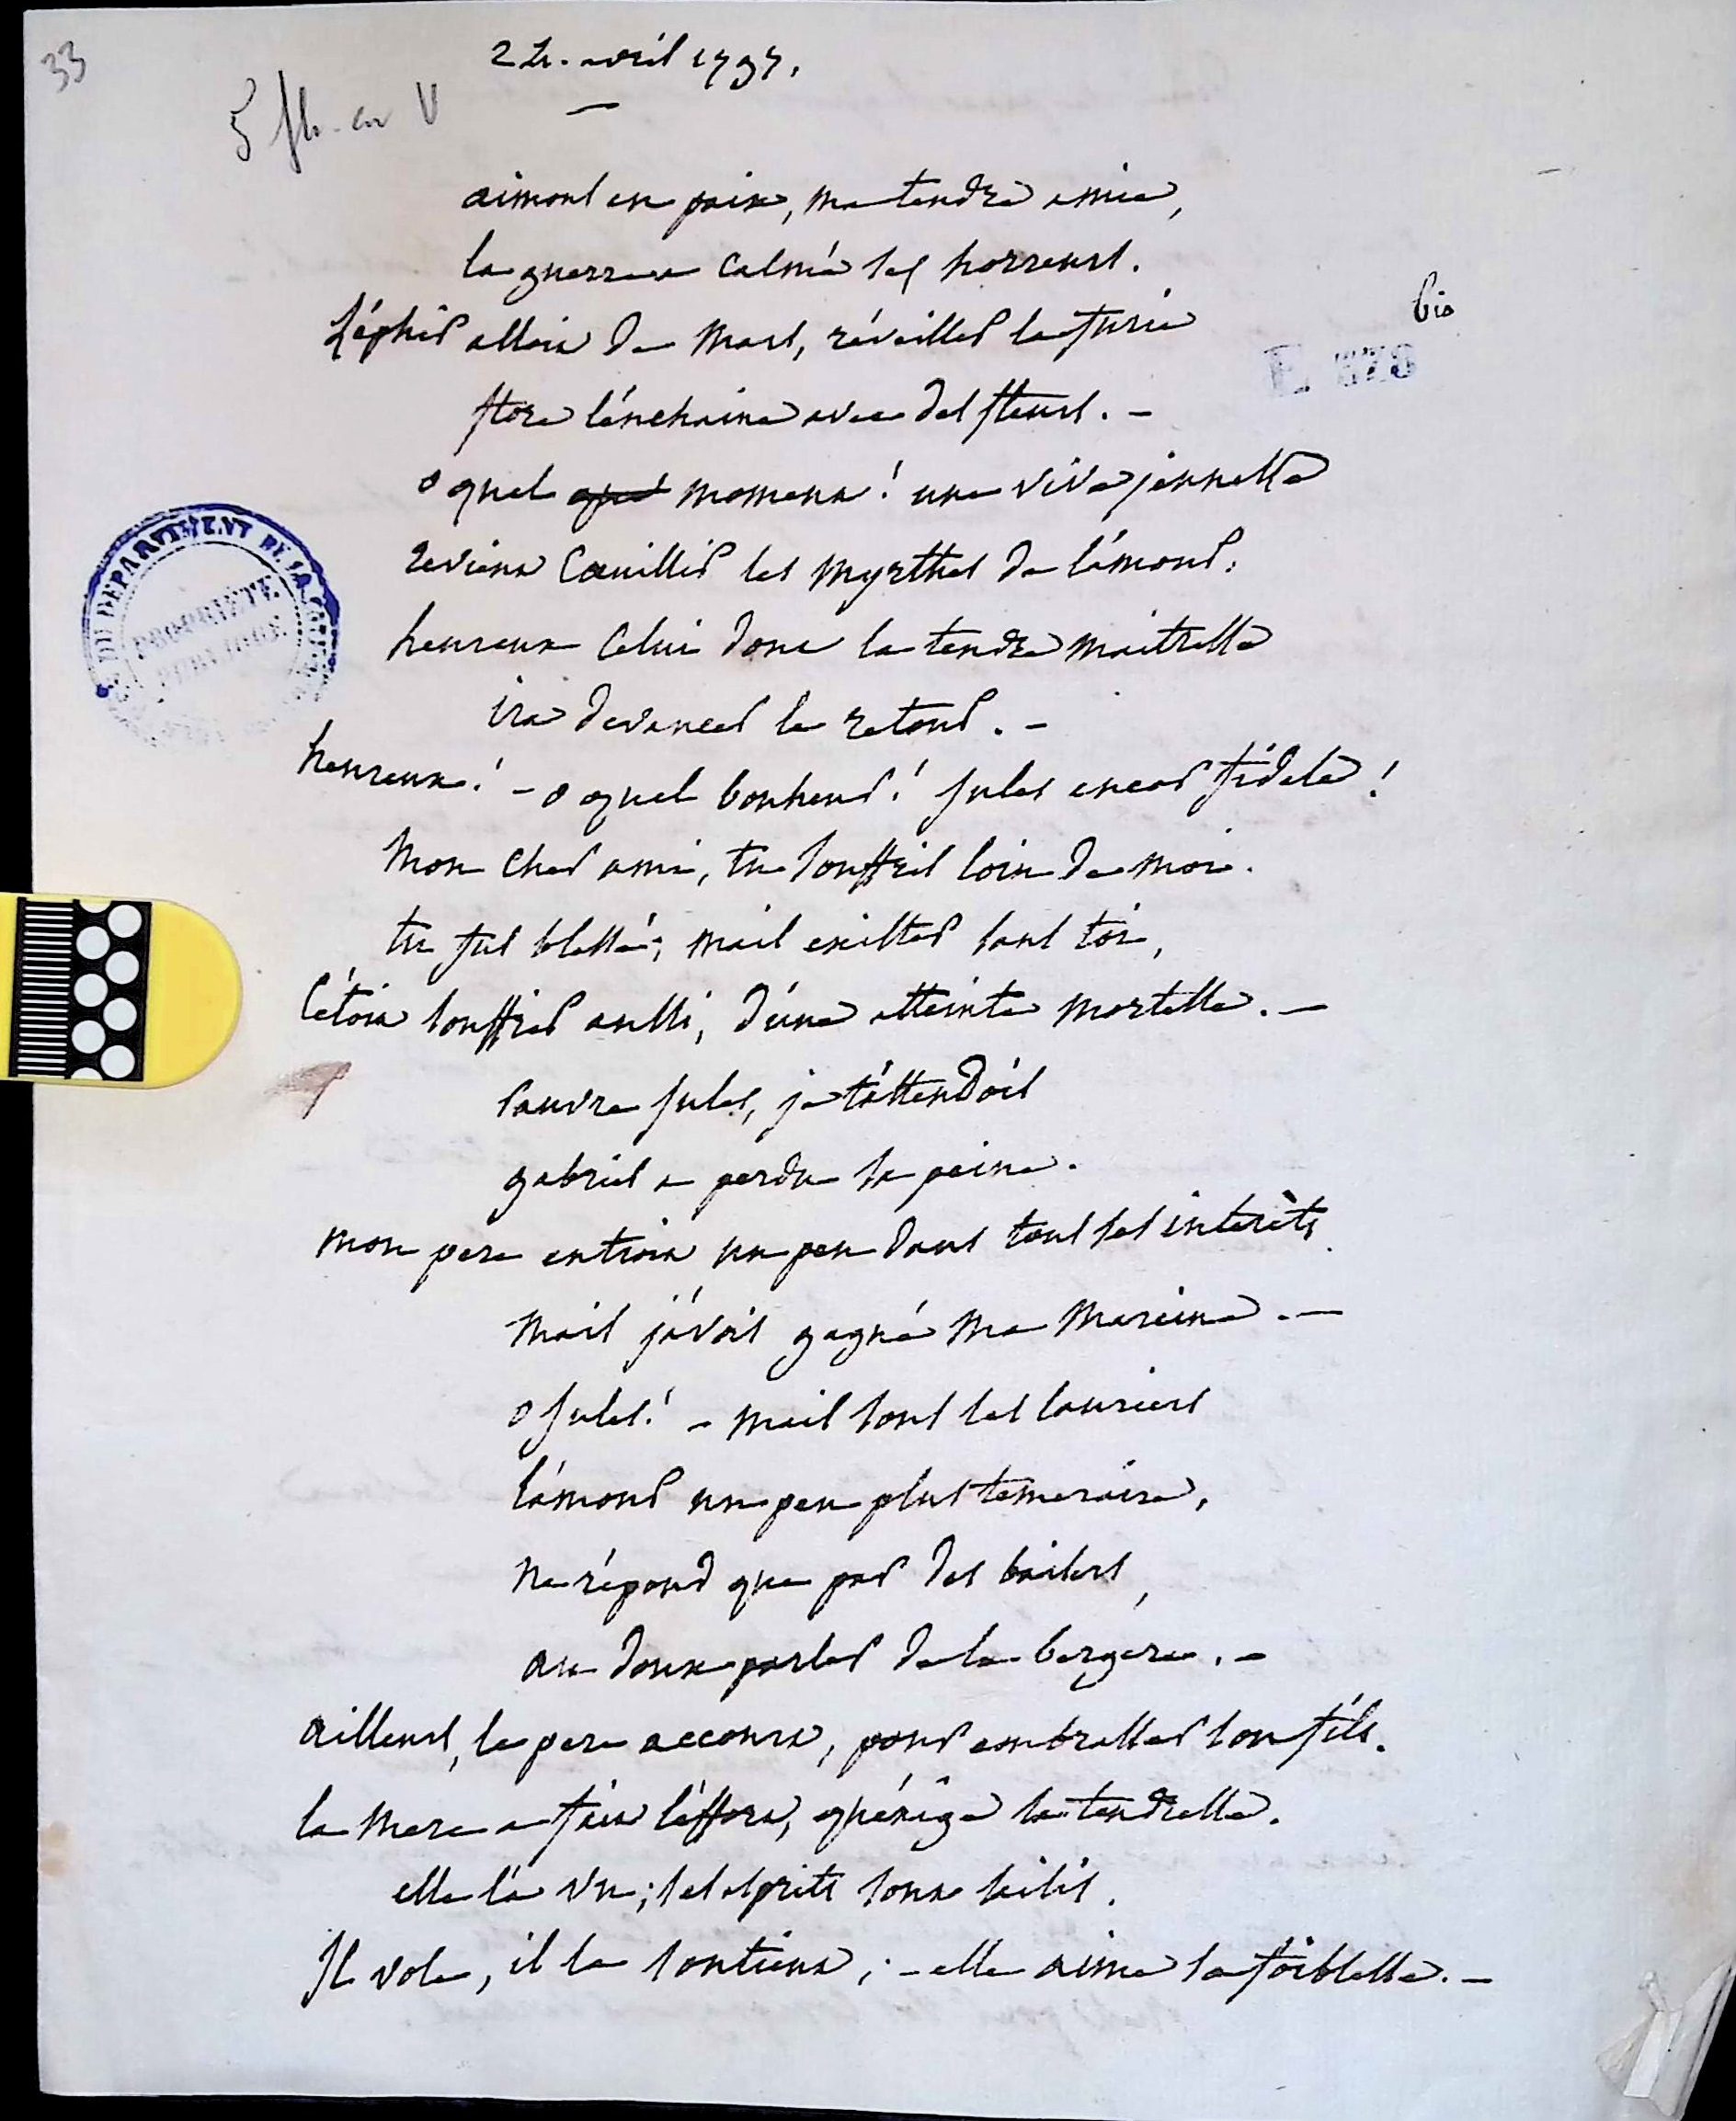 33
24. avril 1797.
5 ff. en V
aimons en paix, ma tendre amie,
la guerre a calmé ses horreurs.
Zéphir alloit de Mars, réveiller la furie
bis
flore l'énchaine avec des fleurs. -
o quel momens! une vive jeunesse
revient Cœuillir les Myrthes de l'ámour,
heureux Celui dont la tendre maitresse
ira devancer le retour. -
heureux! - o quel bonheur! Jules encor fidele!
Mon Cher ami, tu souffris loin de moi.
tu fus blessé; mais exister sans toi,
C'étoit souffrir aussi, d'úne atteinte mortelle. -
Pauvre Jules, je t'áttendois
gabriel a perdu sa peine.
mon pere entroit un peu dans tous ses interèts
Mais j'ávois gagné Ma Mareine. -
o Jules! - Mais sous ses lauriers
l'ámour un peu plus temeraire,
Ne répond que par des baisers,
au doux parler de la bergere. -
ailleurs, le pere accourt, pour embrasser son fils.
la Mere a fait l'éffort, qu'éxige sa tendresse.
elle l'á vu; ses esprits sont saisis.
Il vole, il la soutient; - elle aime sa foiblesse. -
DU DEPARTEMENT DE LA
PROPRIÉTÉ
PUBLIQUE